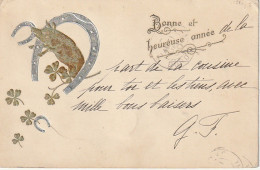 Bonne et
heureuse année de la
part de la cousine
pour toi et les tiens, avec
mille bons baisers
G. F.